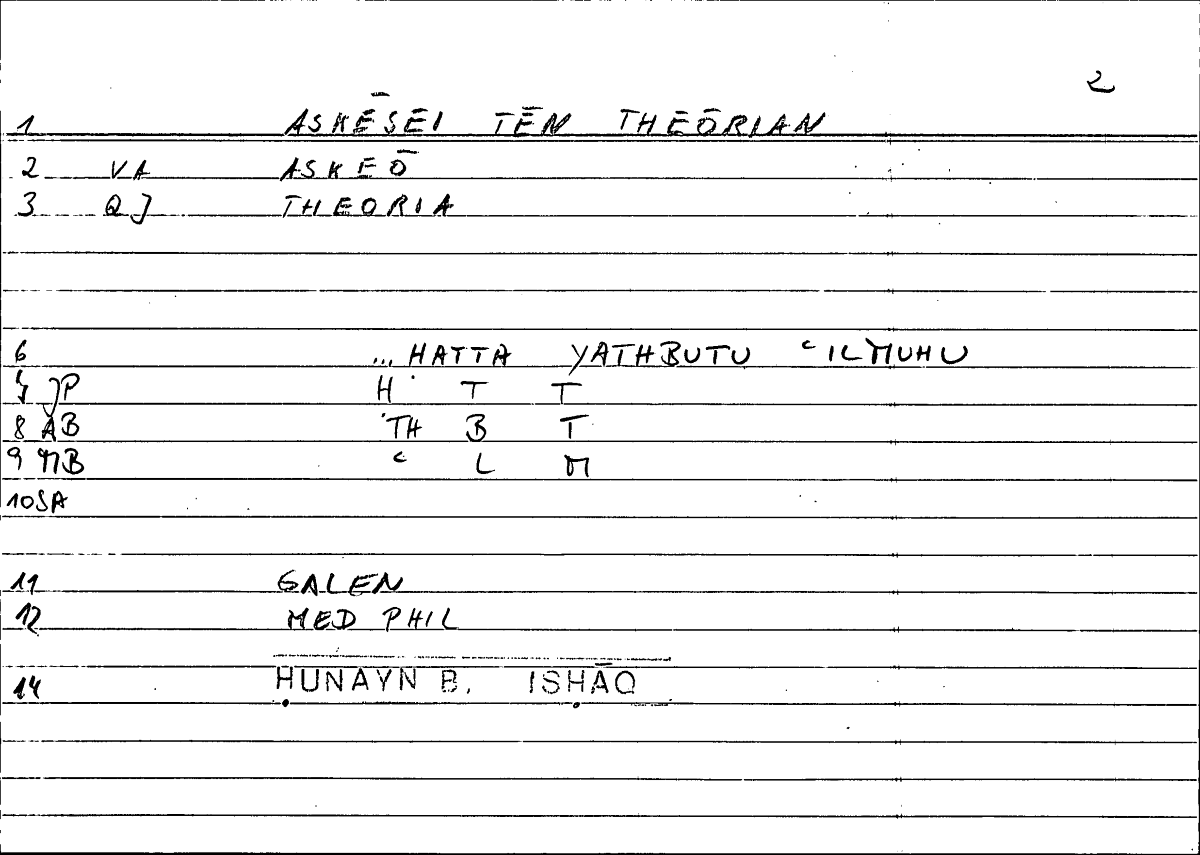 2
1 ASKĒSĒI TĒN THEŌRIAN
2 VA ASKEŌ
3 QJ THEORIA
6 ... HATTA YATHBUTU ʿILMUHU
7 JP H T T
8 AB TH B T
9 MB ʿ L M
10 SA
11 GALEN
12 MED PHIL
14 ḤUNAYN B. ISḤĀQ